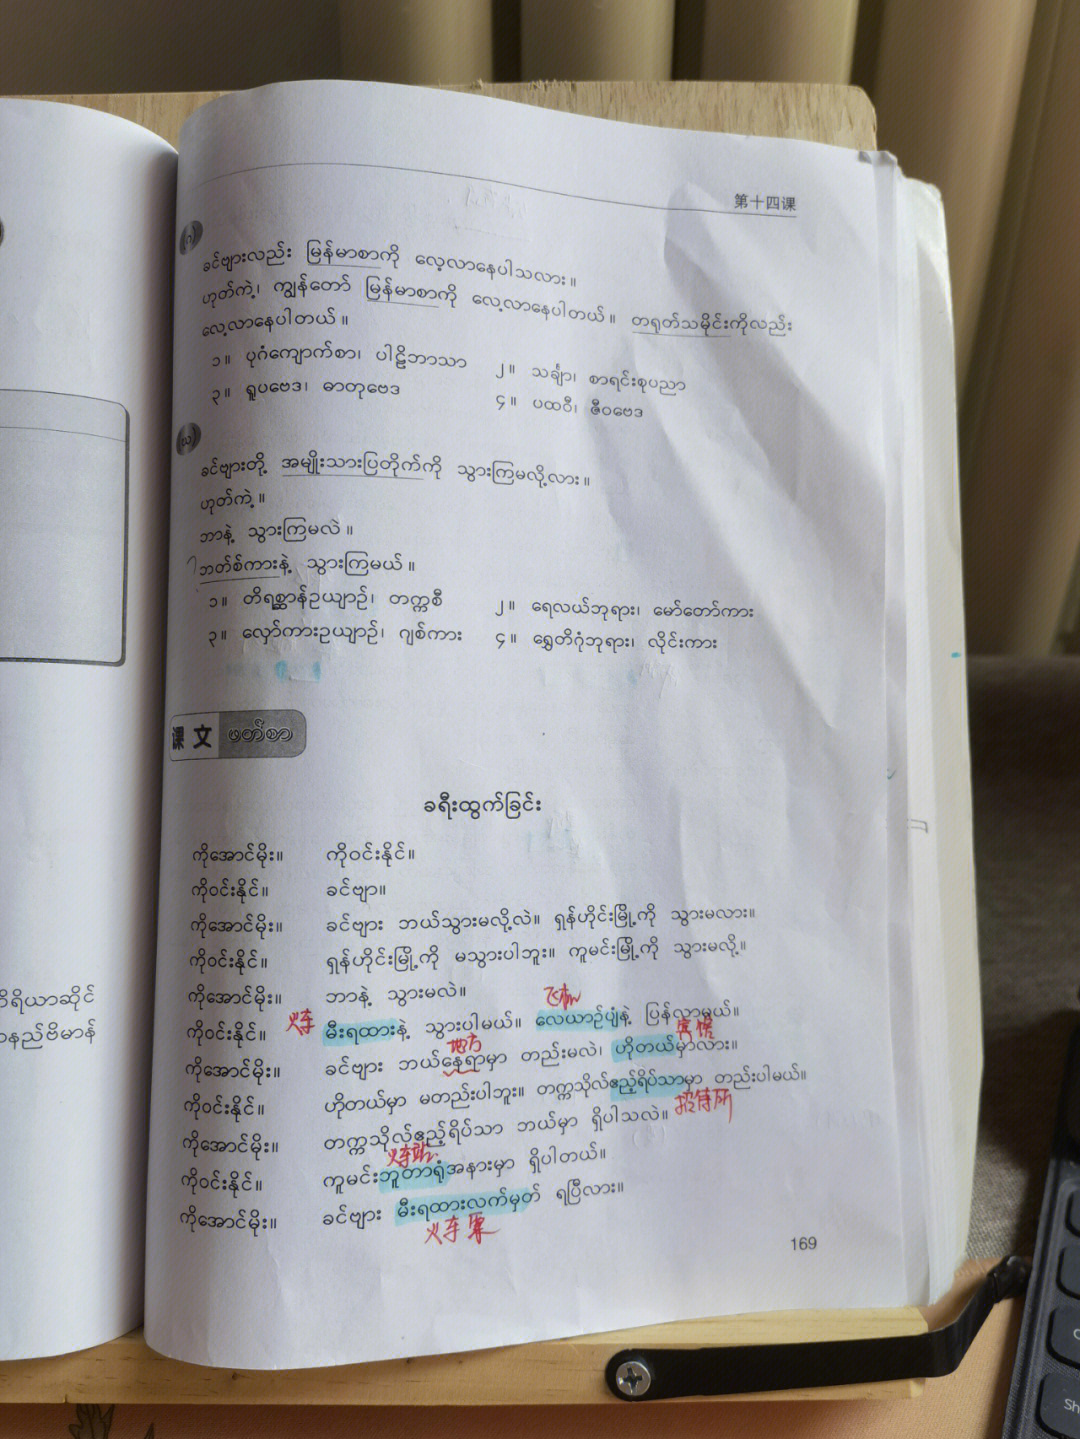 第十四课
(ဂ)
ခင်ဗျားလည်း မြန်မာစာကို လေ့လာနေပါသလား။
ဟုတ်ကဲ့၊ ကျွန်တော် မြန်မာစာကို လေ့လာနေပါတယ်။ တရုတ်သမိုင်းကိုလည်း
လေ့လာနေပါတယ်။
၁။ ပုဂံကျောက်စာ၊ ပါဠိဘာသာ ၂။ သင်္ချာ၊ စာရင်းစုပညာ
၃။ ရူပဗေဒ၊ ဓာတုဗေဒ ၄။ ပထဝီ၊ ဇီဝဗေဒ
(ဃ)
ခင်ဗျားတို့ အမျိုးသားပြတိုက်ကို သွားကြမလို့လား။
ဟုတ်ကဲ့။
ဘာနဲ့ သွားကြမလဲ။
ဘတ်စ်ကားနဲ့ သွားကြမယ်။
၁။ တိရစ္ဆာန်ဥယျာဉ်၊ တက္ကစီ ၂။ ရေလယ်ဘုရား၊ မော်တော်ကား
၃။ လှော်ကားဥယျာဉ်၊ ဂျစ်ကား ၄။ ရွှေတိဂုံဘုရား၊ လိုင်းကား
课文 ဖတ်စာ
ခရီးထွက်ခြင်း
ကိုအောင်မိုး။ ကိုဝင်းနိုင်။
ကိုဝင်းနိုင်။ ခင်ဗျာ။
ကိုအောင်မိုး။ ခင်ဗျား ဘယ်သွားမလို့လဲ။ ရှန်ဟိုင်းမြို့ကို သွားမလား။
ကိုဝင်းနိုင်။ ရှန်ဟိုင်းမြို့ကို မသွားပါဘူး။ ကူမင်းမြို့ကို သွားမလို့။
ကိုအောင်မိုး။ ဘာနဲ့ သွားမလဲ။
飞机
ကိုဝင်းနိုင်။ 火车 မီးရထားနဲ့ သွားပါမယ်။ လေယာဉ်ပျံနဲ့ ပြန်လာမယ်။
地方 宾馆
ကိုအောင်မိုး။ ခင်ဗျား ဘယ်နေရာမှာ တည်းမလဲ၊ ဟိုတယ်မှာလား။
ကိုဝင်းနိုင်။ ဟိုတယ်မှာ မတည်းပါဘူး။ တက္ကသိုလ်ဧည့်ရိပ်သာမှာ တည်းပါမယ်။
招待所
ကိုအောင်မိုး။ တက္ကသိုလ်ဧည့်ရိပ်သာ ဘယ်မှာ ရှိပါသလဲ။
火车站
ကိုဝင်းနိုင်။ ကူမင်းဘူတာရုံအနားမှာ ရှိပါတယ်။
ကိုအောင်မိုး။ ခင်ဗျား မီးရထားလက်မှတ် ရပြီလား။
火车票
169
ရိယာဆိုင်
နည်ဗိမာန်